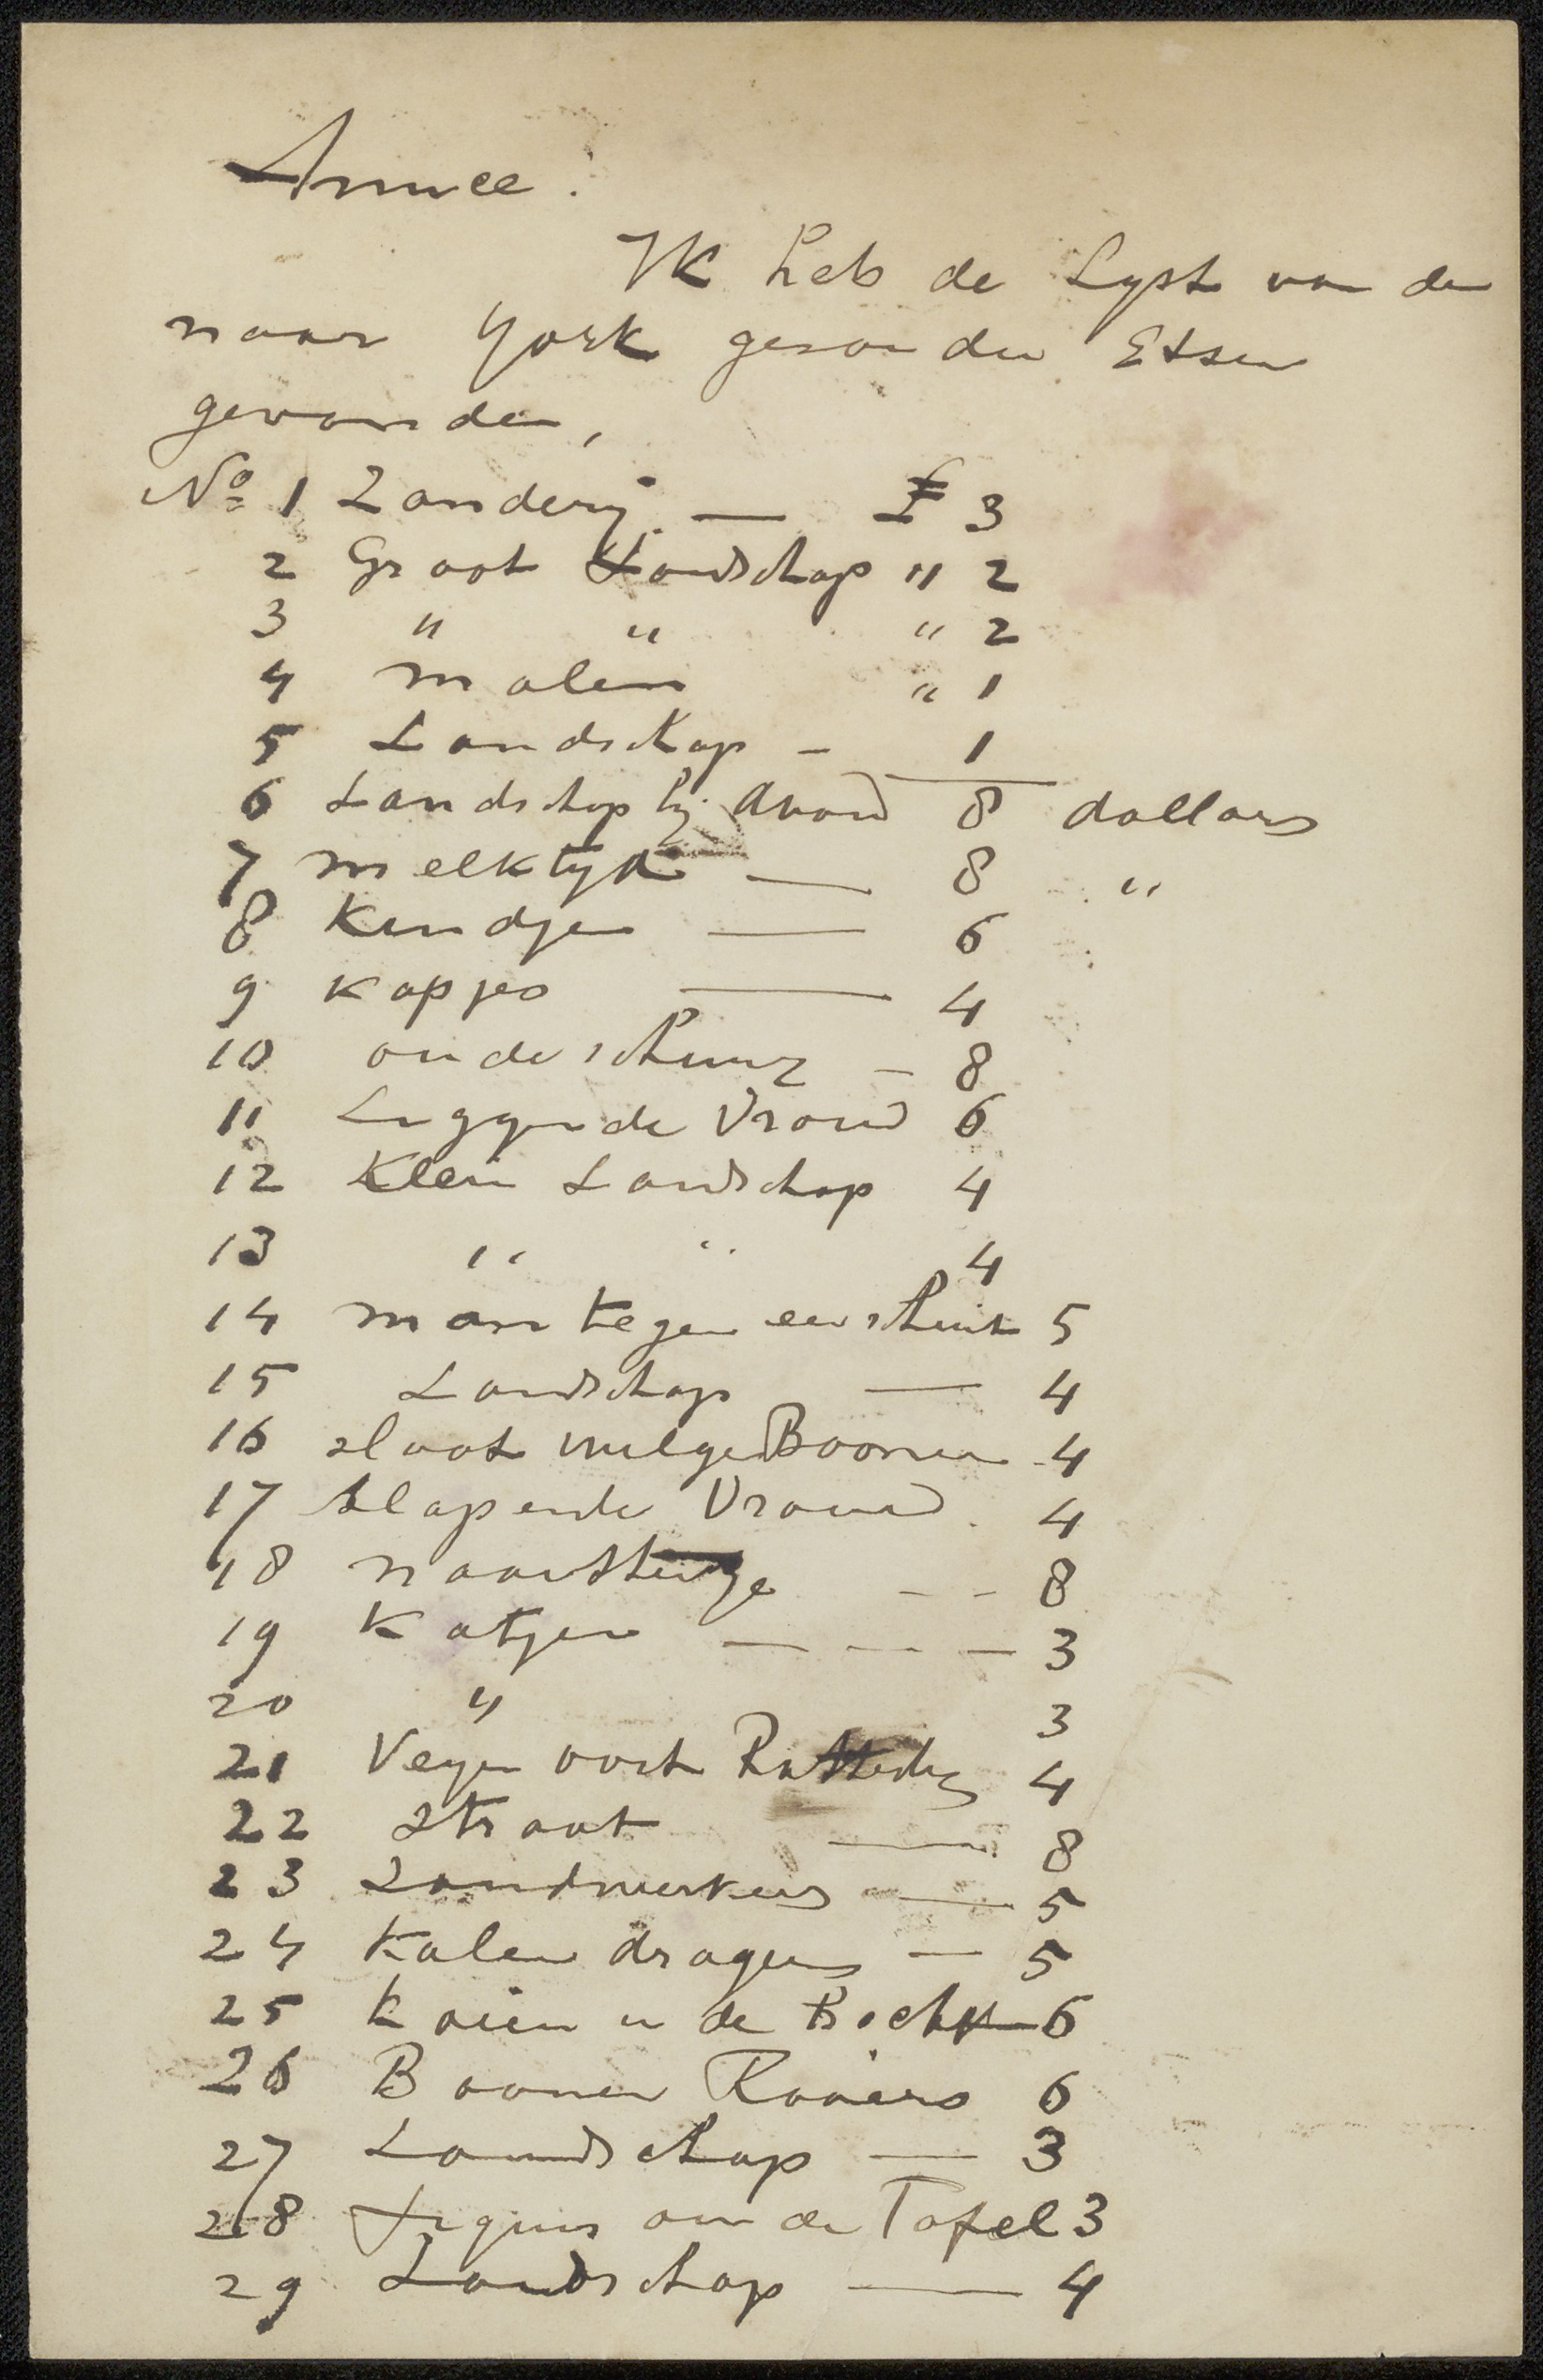 Amice!
Ik heb de Lyst van de
naar York gezonden Etsen
gevonden,
Nº 1 Zanderij — £ 3
2 Groot Landschap " 2
3 " " " 2
4 molen " 1
5 Landschap - 1
6 Landschap bij Avond 8 dollars
7 melktyd — 8 "
8 Kindjen — 6
9 Kopjes — 4
10 oude schuur - 8
11 Liggende Vrouw 6
12 Klein Landschap 4
13 " " 4
14 man tegen een schuit 5
15 Landschap — 4
16 sloot wilge Boomen - 4
17 slapende Vrouw. 4
18 naaister - - 8
19 Katjen — — — 3
20 " 3
21 oost 4
22 Straat — 8
23 Zandwerkers — 5
24 Kolen dragers — 5
25 koeien in de Bocht 6
26 Boomen Rooiers 6
27 Landschap — 3
28 Figuur aan de Tafel 3
29 Landschap — 4